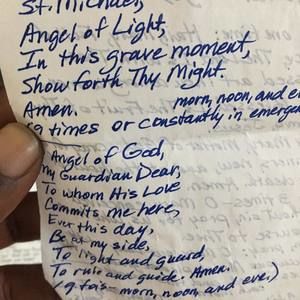 St. Michael,
Angel of Light,
In this grave moment,
Show forth Thy Might.
Amen.
morn, noon, and eve
(9 times or constantly in emergen
Angel of God,
My Guardian Dear,
To whom His Love
Commits me here,
Ever this day,
Be at my side,
To light and guard,
To rule and guide. Amen.
morn, noon, and eve.)